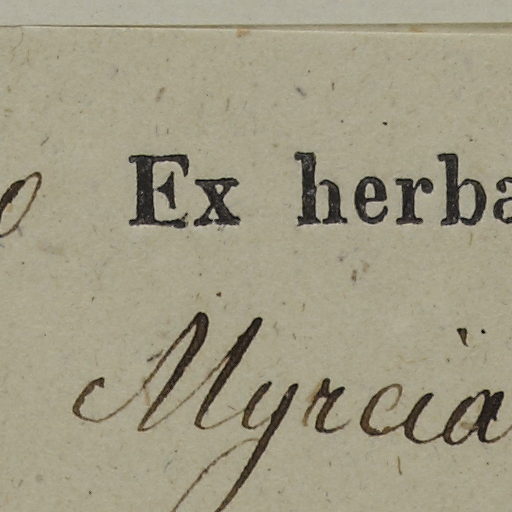 o Ex herba
Myrcia